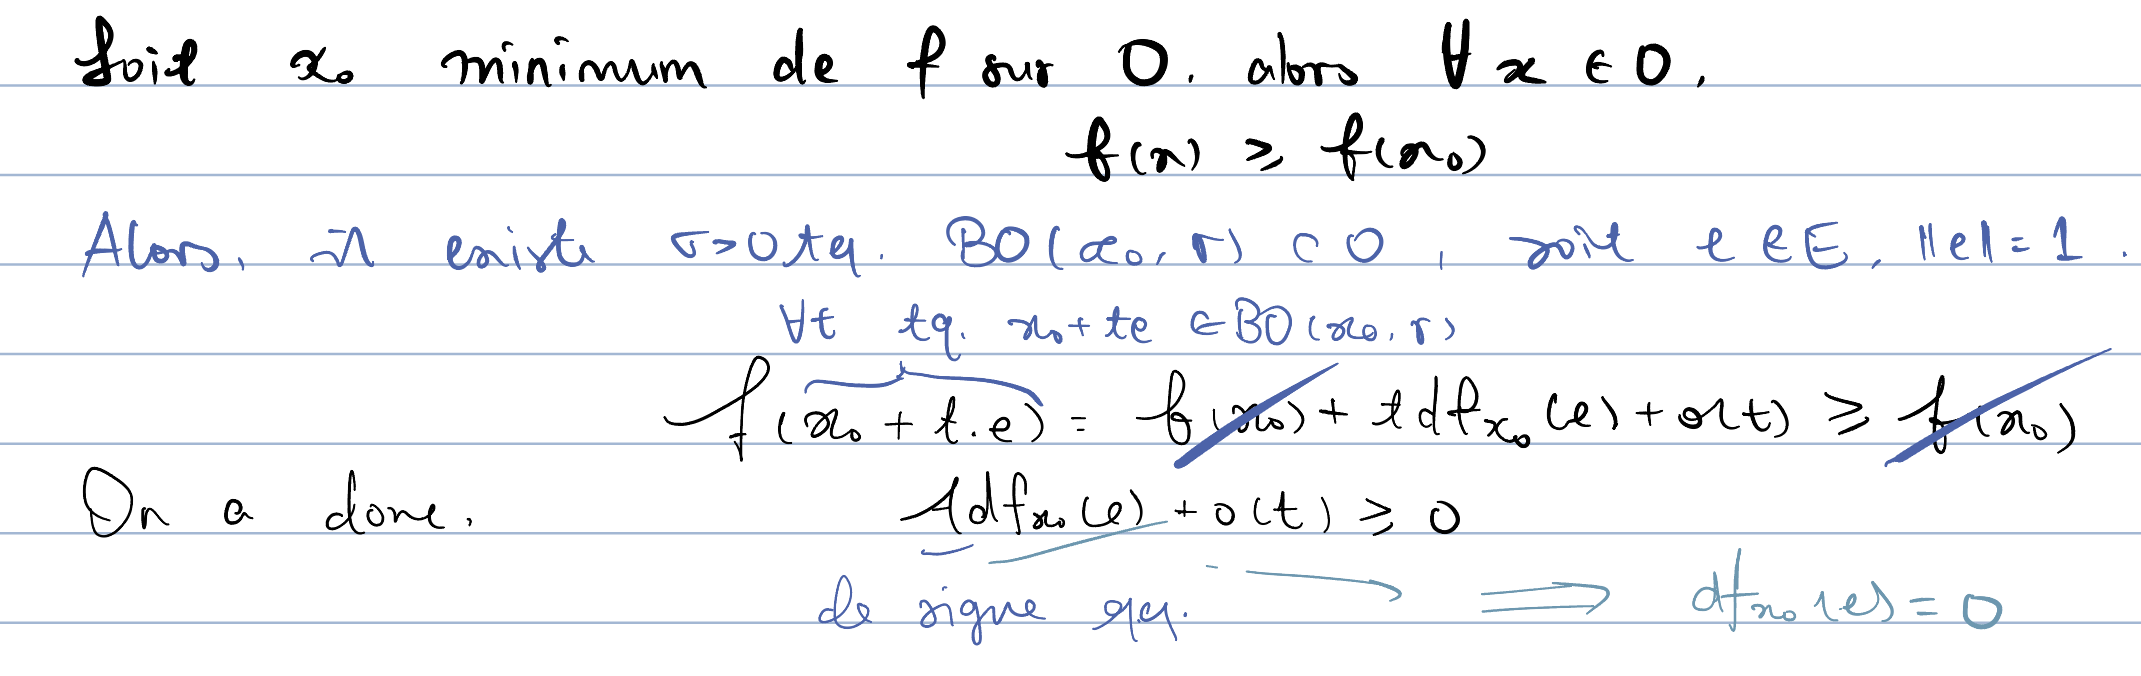 Soit x₀ minimum de f sur O. alors ∀ x ∈ O,
f(x) ≥ f(x₀)
Alors, il existe r>0 tq. BO(x₀, r) ⊂ O, soit e ∈ E, ||e||=1.
∀t tq. x₀ + te ∈ BO(x₀, r)
f(x₀ + t.e) = f(x₀) + t df_x₀(e) + o(t) ≥ f(x₀)
On a donc, t df_x₀(e) + o(t) ≥ 0
de signe qq. ⟹ df_x₀(e) = 0